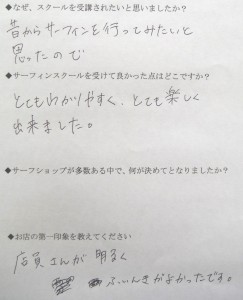 ◆なぜ、スクールを受講されたいと思いましたか?
昔からサーフィンを行ってみたいと
思ったので
◆サーフィンスクールを受けて良かった点はどこですか?
とてもわかりやすく、とても楽しく
出来ました。
◆サーフショップが多数ある中で、何が決めてとなりましたか?
◆お店の第一印象を教えてください
店員さんが明るく
ふいんきがよかったです。